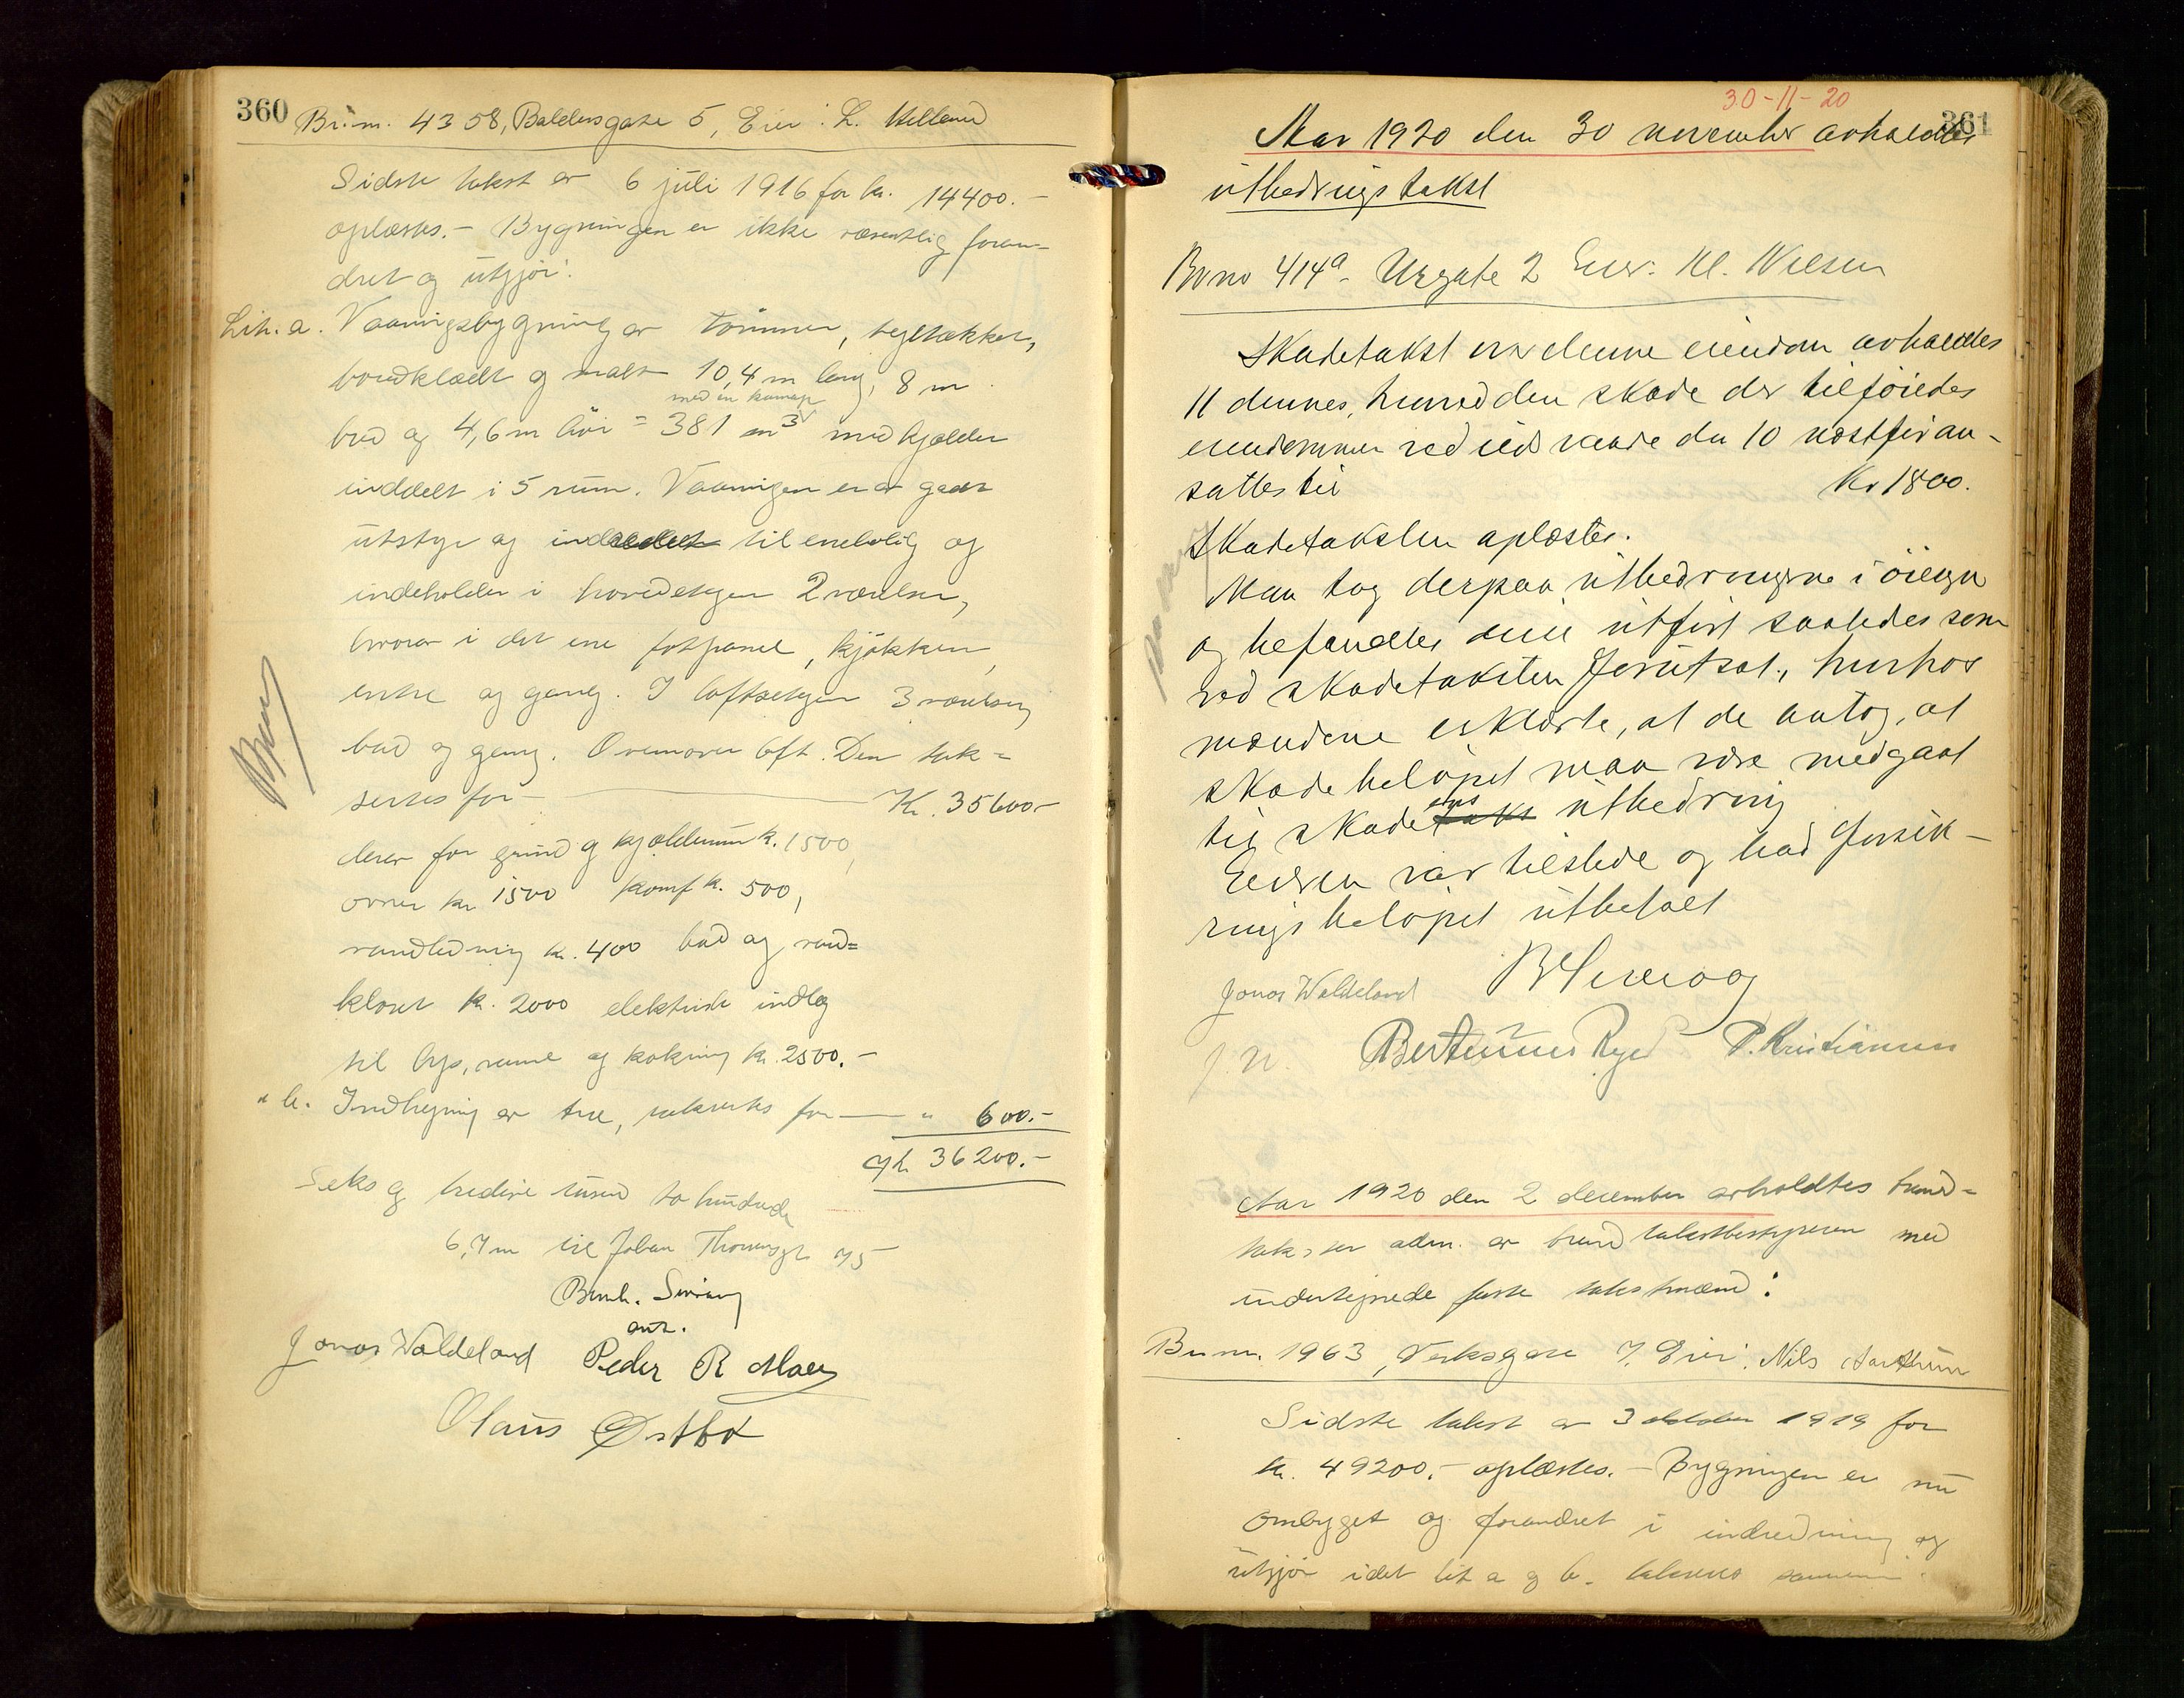 360
Br.nr. 4358, Baldersgate 5, Eier: L. Helland
Sidste takst av 6 juli 1916 for kr. 14400.-
oplæstes. - Bygningen er ikke væsentlig foran-
dret og utgjør:
Lit. a. Vaaningsbygning av tømmer, tegltækket,
bordklædt og malt 10,4 m lang, 8 m
med en kvmap
bred og 4,6 m høi = 381 m³ med kjælder
inddelt i 5 rum. Vaaningen er av godt
utstyr og indredet til enebolig og
indeholder i hovedetagen 2 værelser,
hvorav i det ene fotpanel, kjøkken,
entre og gang. I loftsetagen 3 værelser,
bad og gang. Ovenover loft. Den tak=
seres for - Kr. 35600.-
derav for grund og kjælderrum k. 1500,
ovner kr 1500 komf k. 500,
vandledning kr. 400 bad og vand=
kloset kr. 2000 elektrisk indlæg
til lys, varme og kokning kr. 2500.-
" b. Indhegning av træ, takseres for - " 600.-
Kr. 36200.-
Seks og tredive tusen to hundrede
6,7 m til Johan Thomsgt 75
Bernh. Sivvang
ass.
Jonas Waldeland Peder R Moen
Olaus Østbø
30-11-20
361
Aar 1920 den 30 november avholdtes
utbedringstakst
Brno 414a - Urgate 2 Eier: Kl. Nielsen
Skadetakst over denne eiendom avholdtes
11 dennes, hvorved den skade der tilføiedes
eiendommen ved ildsvaade den 10 næstfør an-
sattes til Kr 1800.
Skadetaksten oplæstes.
Man tog derpaa utbedringerne i øiesyn
og befandtes disse utført saaledes som
ved skadetaksten forutsat, hvorhos
mændene erklærte, at de antog, at
skadebeløpet maa være medgaat
til skadens utbedring
Eieren var tilstede og bad forsik-
ringsbeløpet utbetalt
Jonas Waldeland
Bertinius Rye P. Kristiansen
Aar 1920 den 2 december avholdtes brand=
takster adm. av brandtakstbestyreren med
undertegnede faste takstmænd:
Br.nr. 1963, Verksgate 7, Eier: Nils Aarthun
Sidste takst av 3 oktober 1919 for
kr. 49200.- oplæstes. - Bygningen er nu
ombygget og forandret i indredning og
utgjør idet lit a og b. takseres sammen: